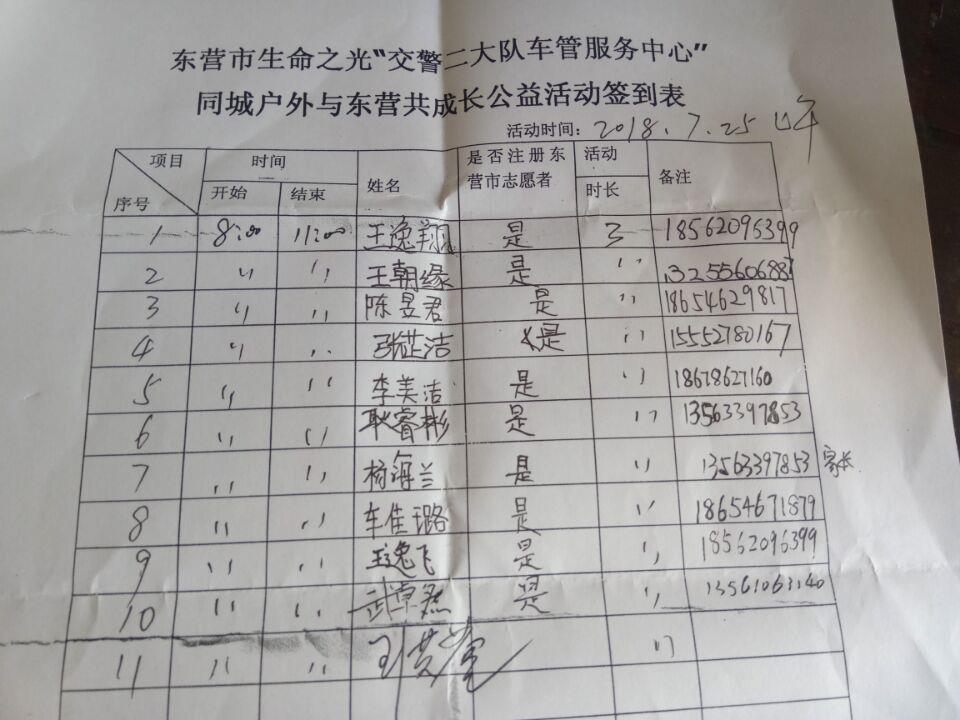 东营市生命之光“交警二大队车管服务中心”
同城户外与东营共成长公益活动签到表
活动时间：2018.7.25
项目 序号 时间 开始 结束 姓名 是否注册东营市志愿者 活动时长 备注
1 8:00 11:00 王逸翔 是 3 18562096399
2 〃 〃 王朝缘 是 〃 1325560688
3 〃 〃 陈昱君 是 〃 18654629817
4 〃 〃 张芷洁 是 〃 15552780167
5 〃 〃 李美洁 是 〃 18678627160
6 〃 〃 耿睿彬 是 〃 13563397853
7 〃 〃 杨海兰 是 〃 13563397853 家长
8 〃 〃 车佳璐 是 〃 18654671879
9 〃 〃 王逸飞 是 〃 18562096399
10 〃 〃 武卓然 是 〃 13561063140
11 〃 〃 〃